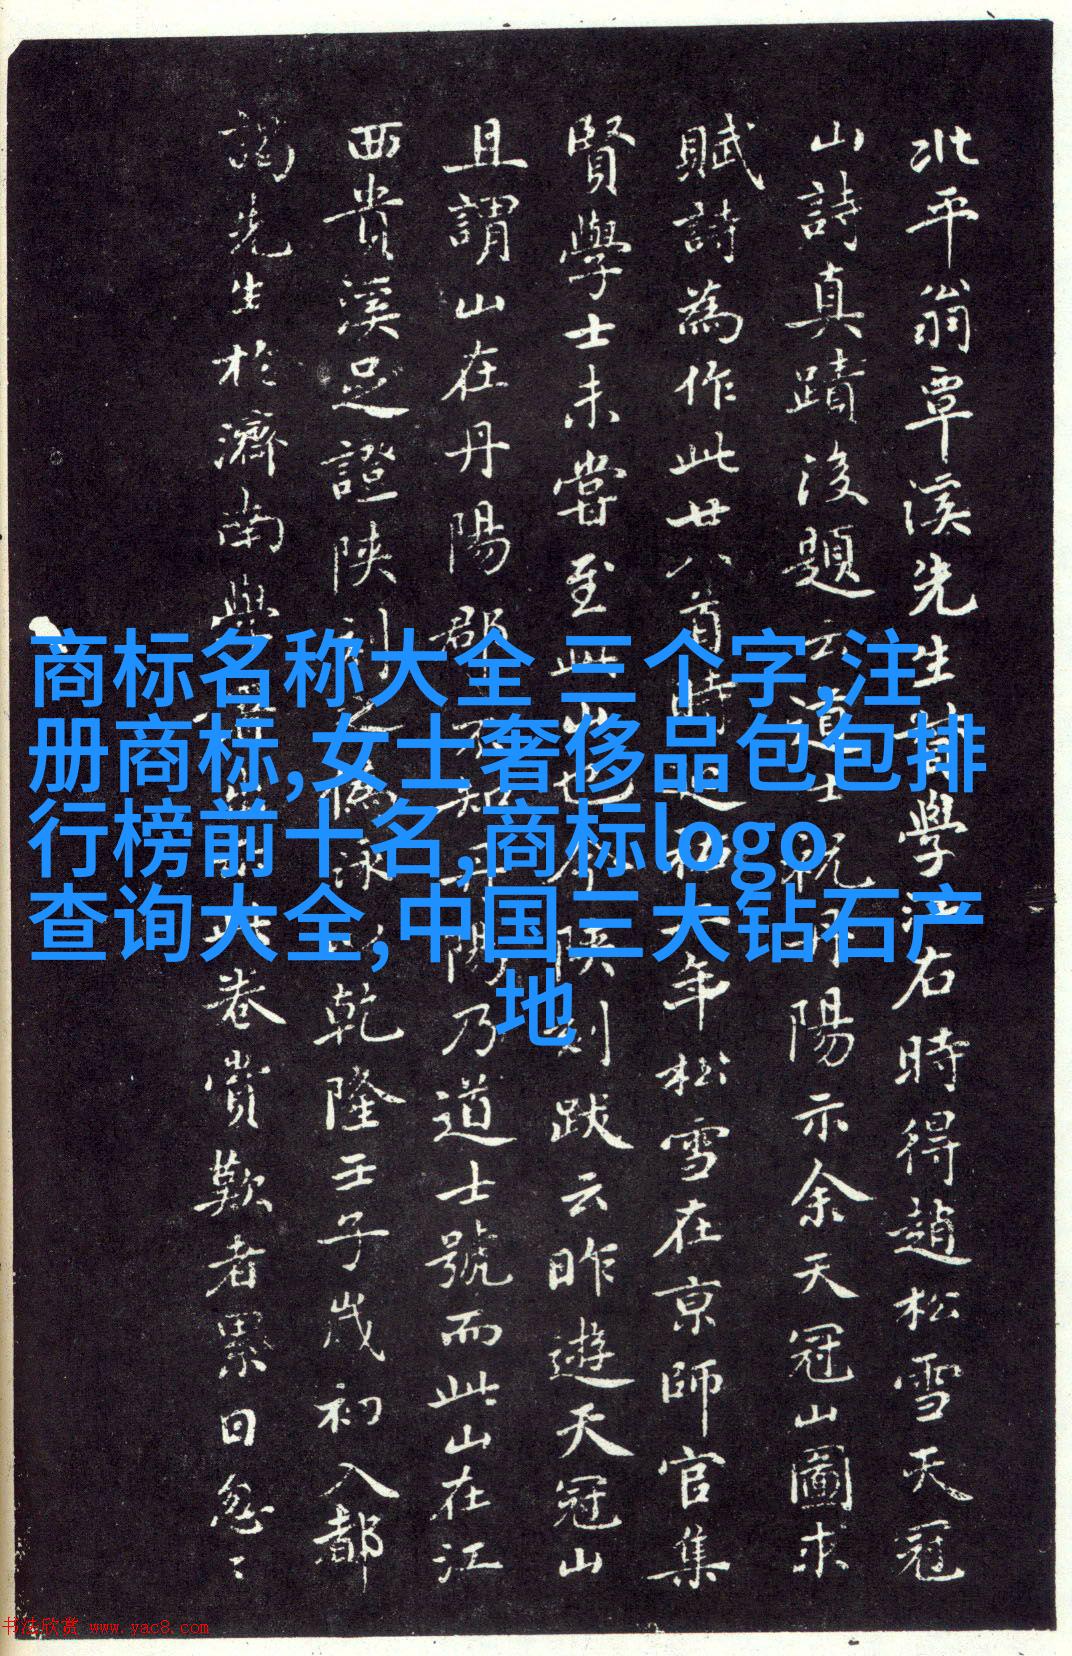 北平翁覃溪先生督學江右時得趙松雪天冠
山詩真蹟後題云道士祝丹陽示余天冠山圖求
賦詩為作此廿八首時延祐二年松雪在京師官集
賢學士未嘗至此山也今陝刻跋云昨遊天冠山
且謂山在丹陽郡不知丹陽乃道士號而此山在江
西貴溪足證陝刻之偽詠以乾隆壬子歲初入都
謁先生於濟南學署此卷賞歎者累日忽〻
商标名称大全 三个字,注
册商标,女士奢侈品包包排
行榜前十名,商标logo
查询大全,中国三大钻石产
地
书法欣赏 www.yac8.com